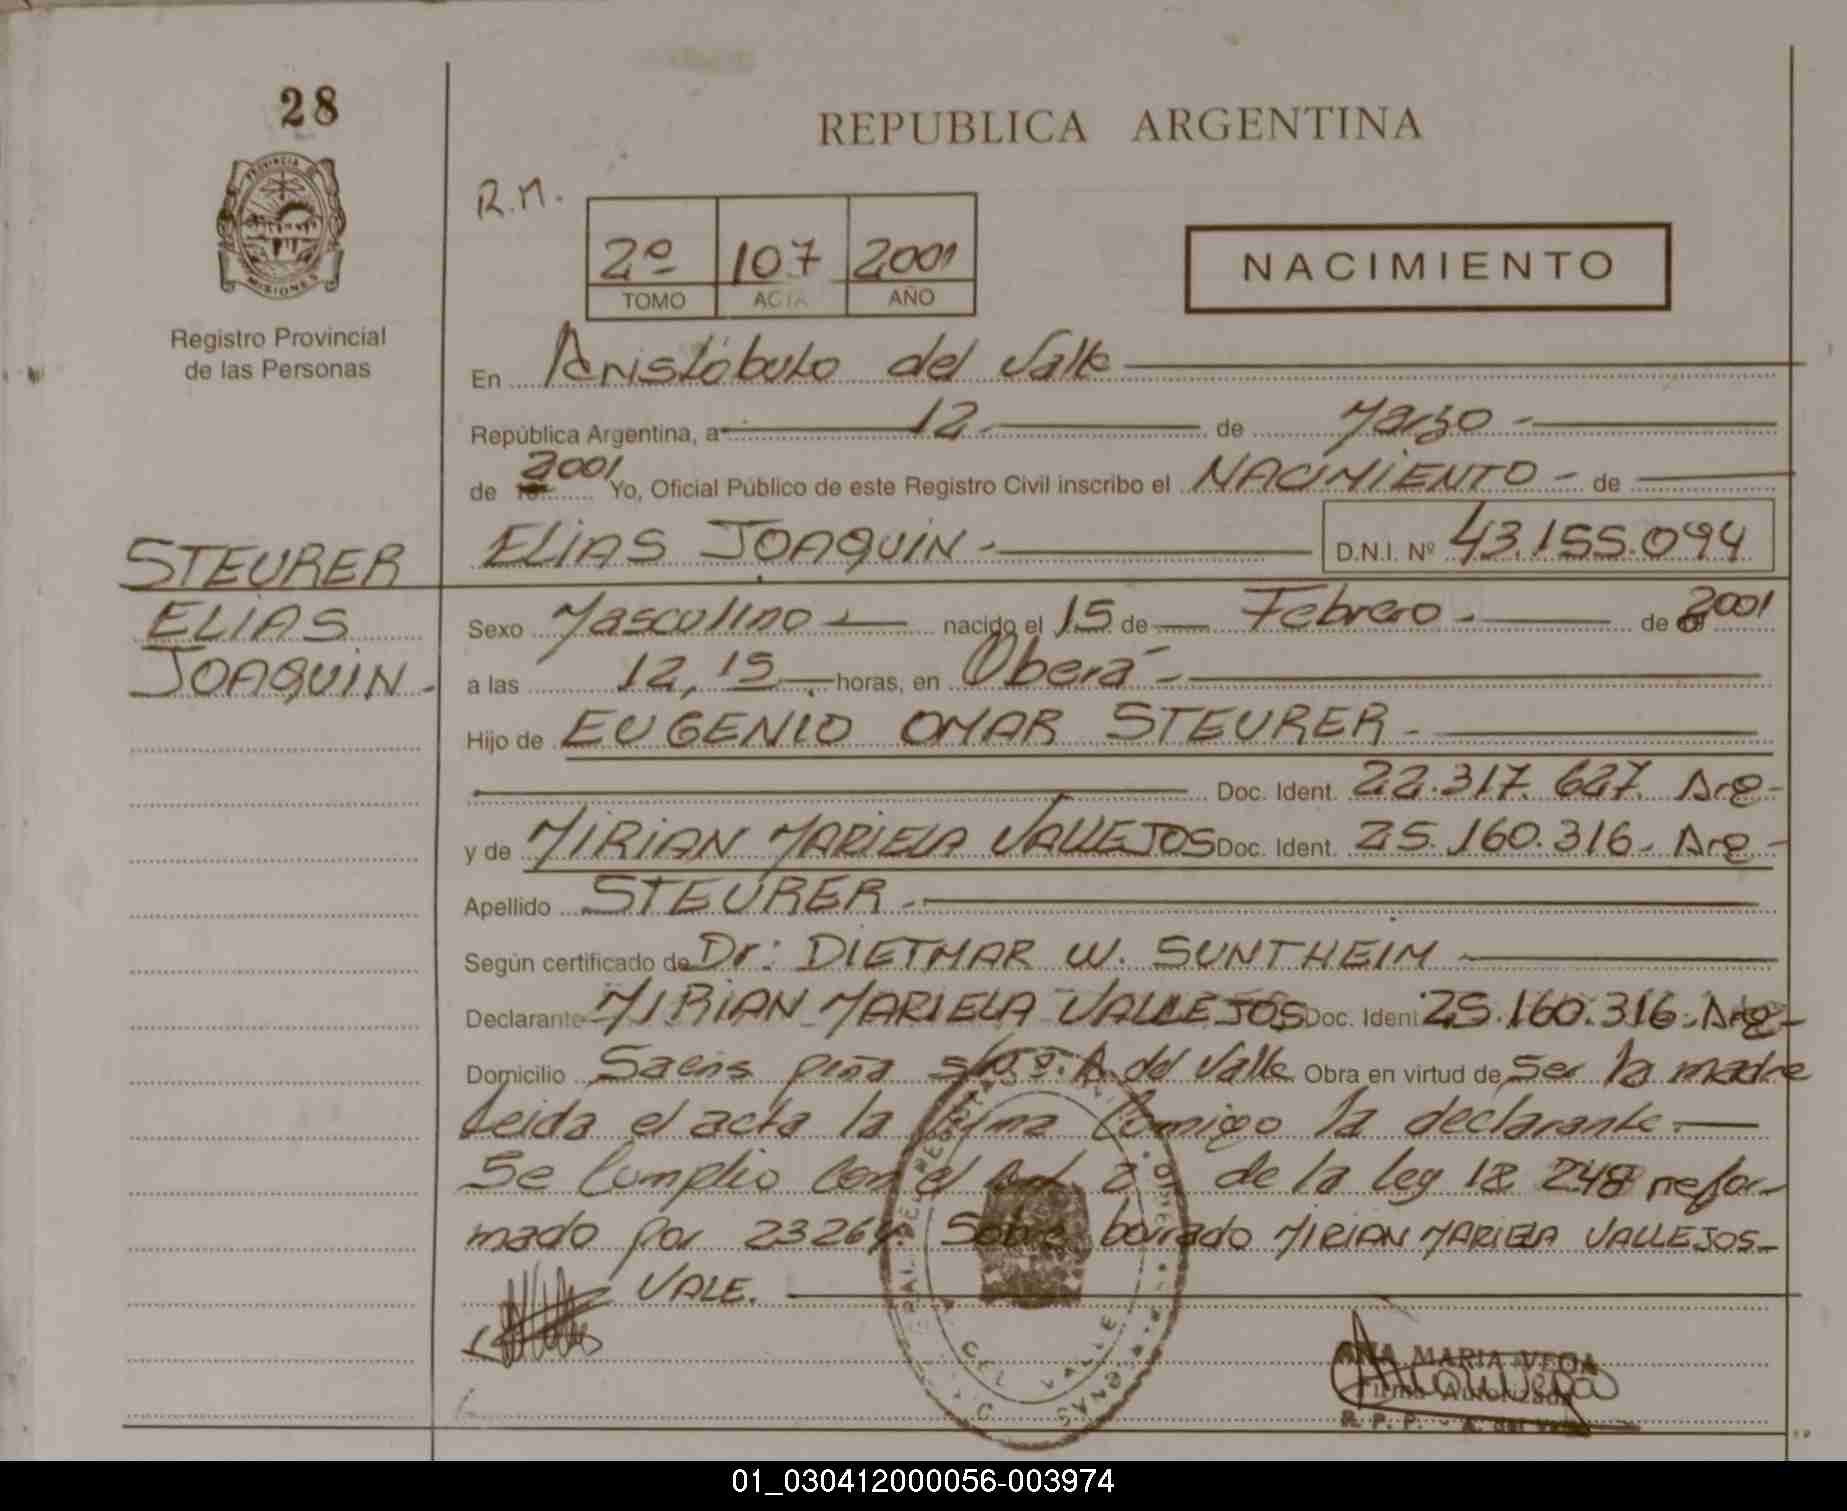 28
PROVINCIA
MISIONES
Registro Provincial
de las Personas
STEURER
ELIAS
JOAQUIN.
REPUBLICA ARGENTINA
R.M.
2º 107 2001
TOMO ACTA AÑO
NACIMIENTO
En Aristóbulo del Valle
República Argentina, a 12 de Marzo
de 2001 Yo, Oficial Público de este Registro Civil inscribo el NACIMIENTO de
ELIAS JOAQUIN D.N.I. Nº 43.155.094
Sexo Masculino nacido el 15 de Febrero de 2001
a las 12,15 horas, en Oberá
Hijo de EUGENIO OMAR STEURER
Doc. Ident. 22.317.627 Arg-
y de MIRIAN MARIELA VALLEJOS Doc. Ident. 25.160.316- Arg-
Apellido STEURER
Según certificado de Dr: DIETMAR W. SUNTHEIM
Declarante MIRIAN MARIELA VALLEJOS Doc. Ident 25.160.316- Arg-
Domicilio Saens peña s/nº. A. del Valle Obra en virtud de Ser la madre
Leida el acta la firma Comigo la declarante.
Se Cumplio con el Art 2 de la Ley 18 248 refor-
mado por 23264. Sobre borrado MIRIAN MARIELA VALLEJOS-
VALE.
DEL VALLE
ANA MARIA VEGA
Firma Autorizada
R. P. P. - A. del Valle
01_030412000056-003974